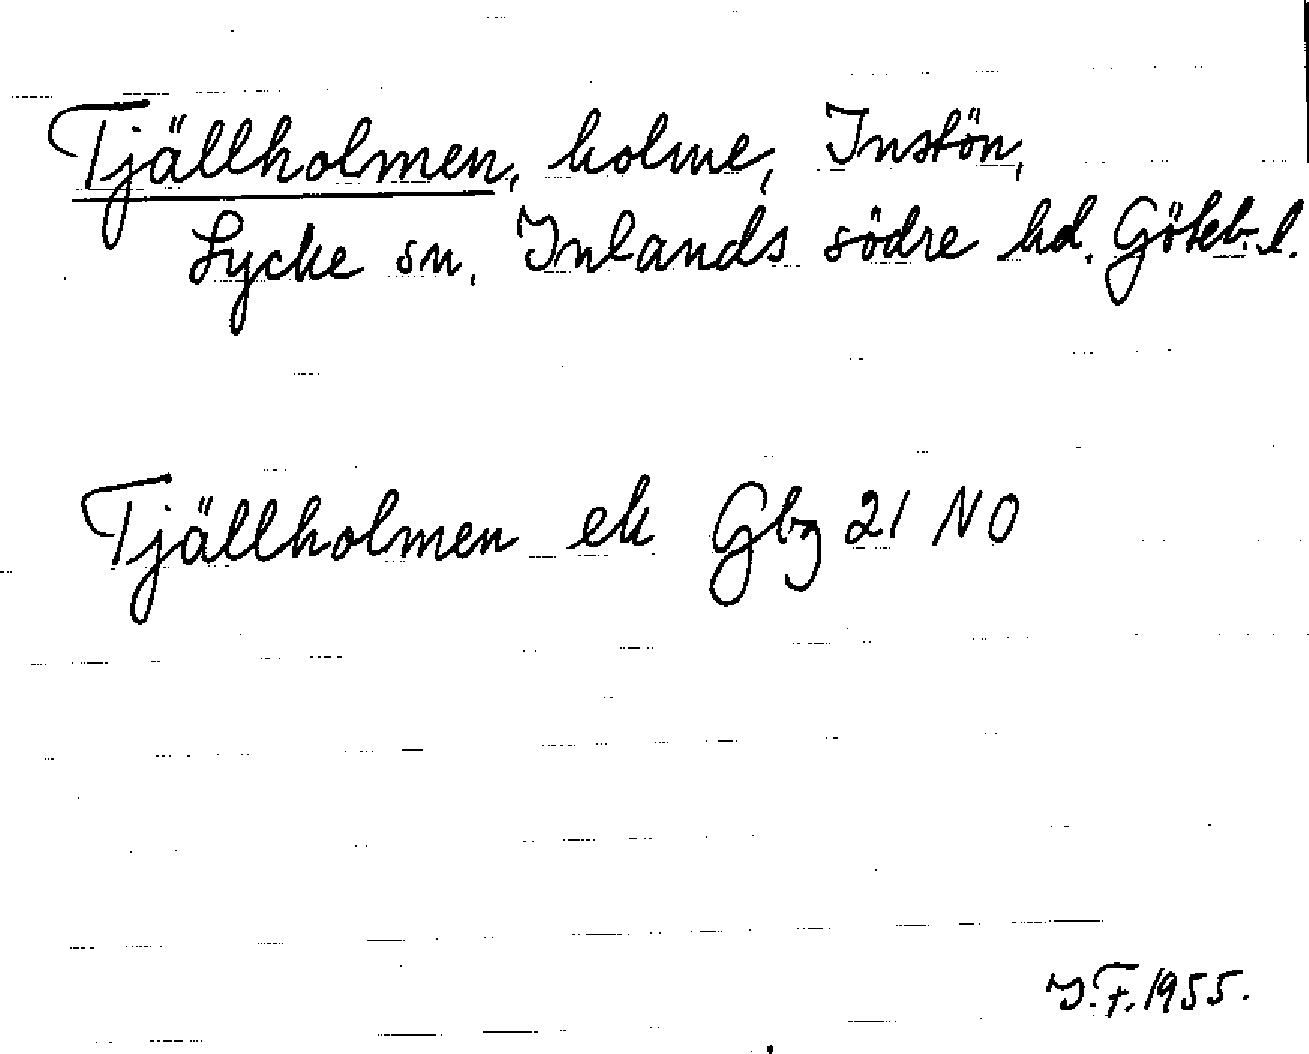 Tjällholmen, holme, Instön,
Lycke sn, Inlands södre hd, Götebl.
Tjällholmen ek Gbg 21 NO
I.F. 1955.